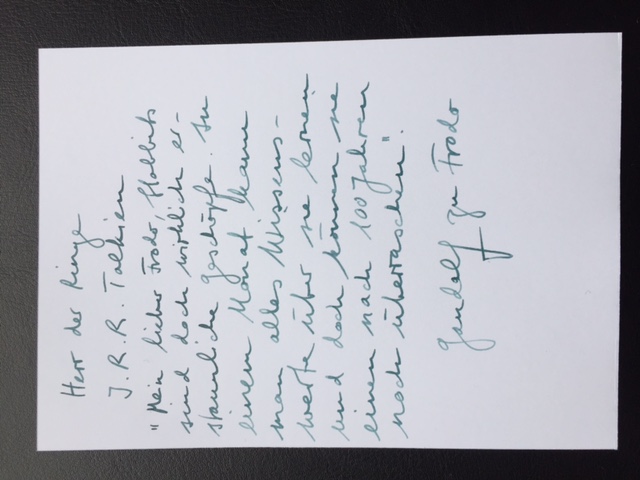 Herr der Ringe
J. R. R. Tolkien
"Mein lieber Frodo, Hobbits
sind doch wirklich er-
staunliche Geschöpfe. In
einem Monat kann
man alles Wissens-
werte über sie lernen
und doch können sie
einen nach 100 Jahren
noch überraschen".
Gandalf zu Frodo